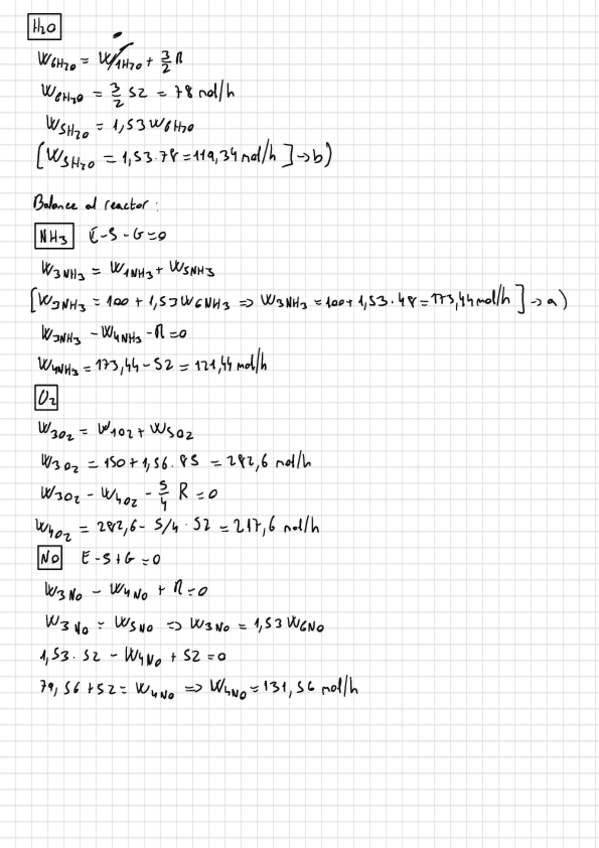 H₂O
W₆H₂O = W₁H₂O + 3/2 R
W₆H₂O = 3/2 52 = 78 mol/h
W₅H₂O = 1,53 W₆H₂O
[W₅H₂O = 1,53·78 = 119,34 mol/h] → b)
Balance al reactor:
NH₃ E-S-G=0
W₃NH₃ = W₁NH₃ + W₅NH₃
[W₃NH₃ = 100 + 1,53 W₆NH₃ ⇒ W₃NH₃ = 100 + 1,53·48 = 173,44 mol/h] → a)
W₃NH₃ - W₄NH₃ - R = 0
W₄NH₃ = 173,44 - 52 = 121,44 mol/h
O₂
W₃O₂ = W₁O₂ + W₅O₂
W₃O₂ = 150 + 1,56·85 = 282,6 mol/h
W₃O₂ - W₄O₂ - 5/4 R = 0
W₄O₂ = 282,6 - 5/4·52 = 217,6 mol/h
NO E-S+G=0
W₃NO - W₄NO + R = 0
W₃NO = W₅NO ⇒ W₃NO = 1,53 W₆NO
1,53·52 - W₄NO + 52 = 0
79,56 + 52 = W₄NO ⇒ W₄NO = 131,56 mol/h